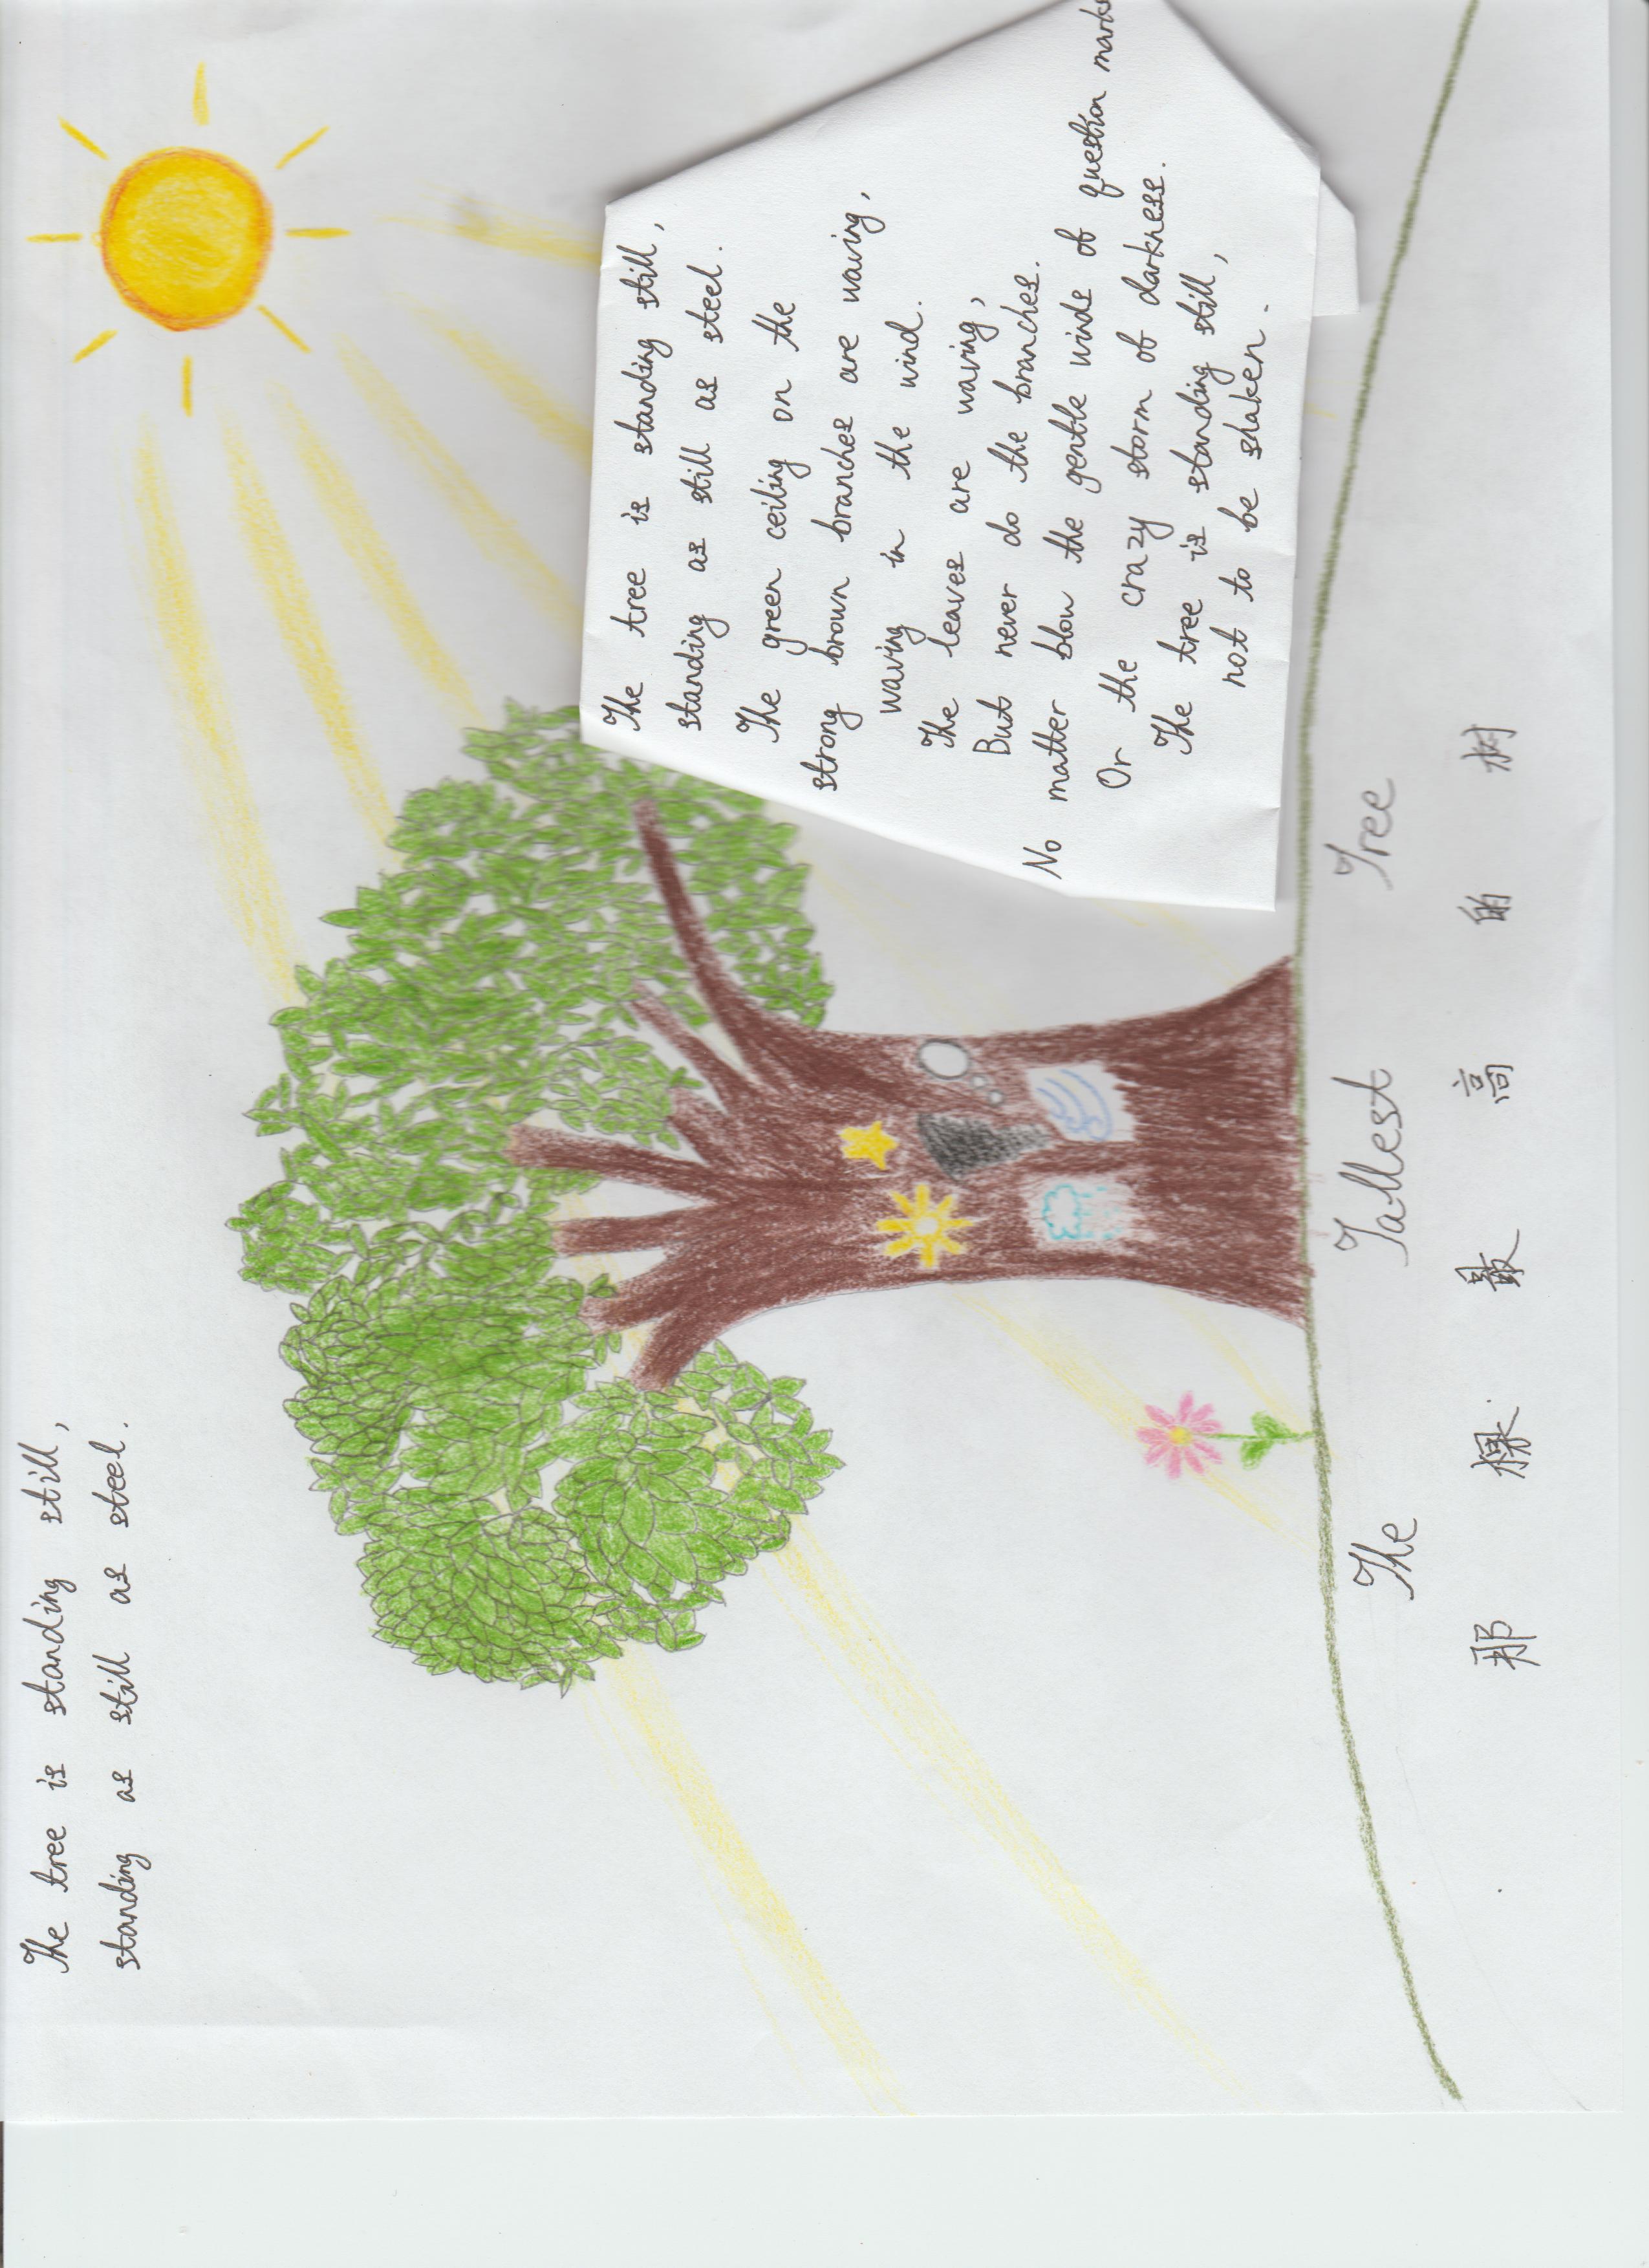 The tree is standing still,
standing as still as steel.
The tree is standing still,
standing as still as steel.
The green ceiling on the
strong brown branches are waving,
waving in the wind.
The leaves are waving,
But never do the branches.
No matter blow the gentle winds of question marks
Or the crazy storm of darkness.
The tree is standing still,
not to be shaken.
The Tallest Tree
那 棵 最 高 的 树